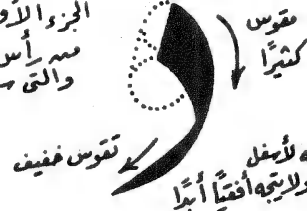 الجزء الأو
من رأس
والتى
مقوس
كثيرًا
تقوس خفيف
لأسفل
ولا يتجه أفقيًا أبدًا